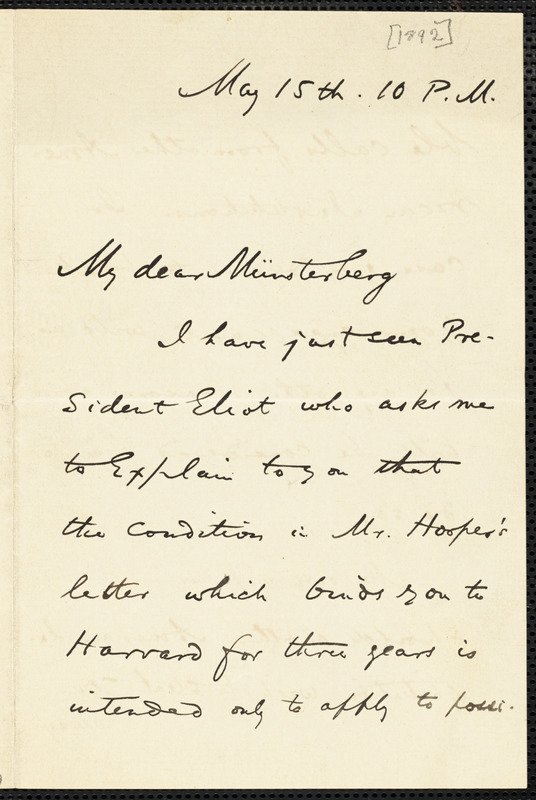 [1892]
May 15th. 10 P.M.
My dear Münsterberg
I have just seen Pre-
sident Eliot who asks me
to explain to you that
the condition in Mr. Hooper's
letter which binds you to
Harvard for three years is
intended only to apply to possi-